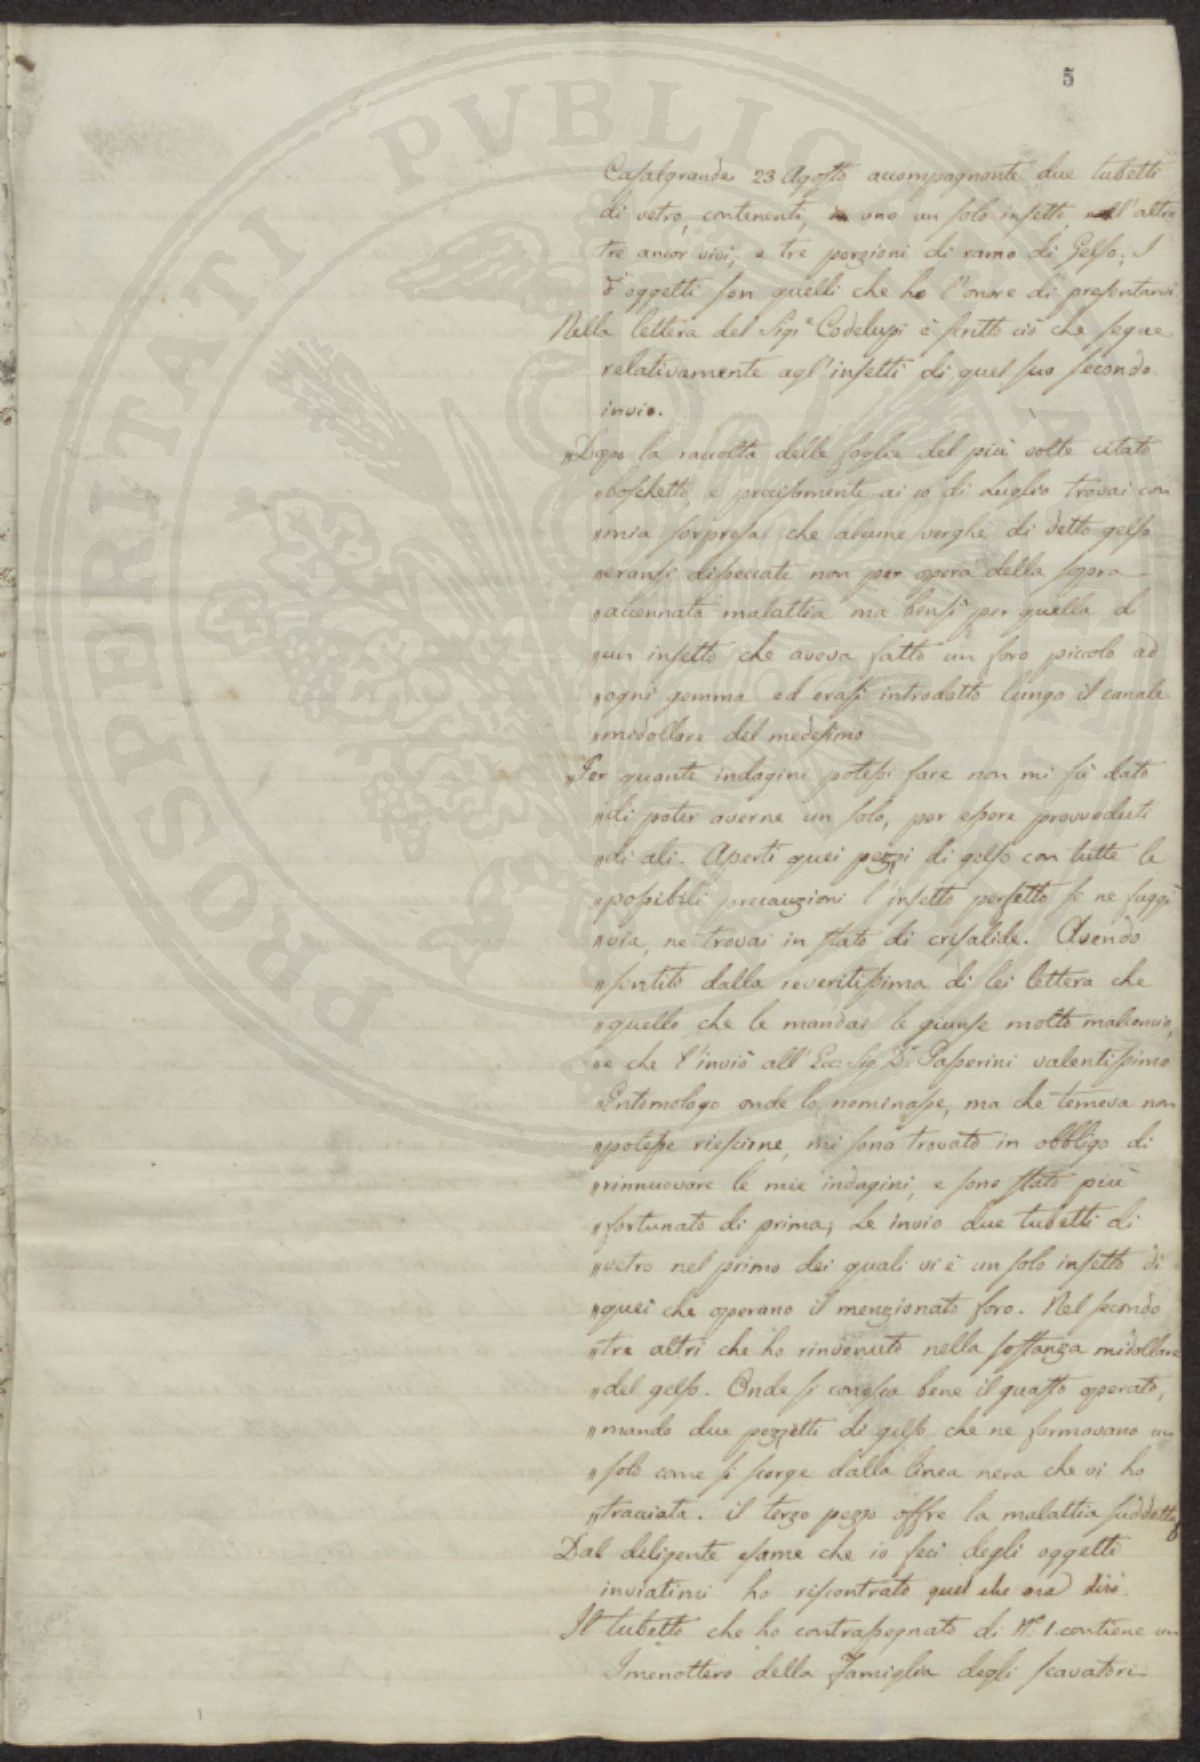 5
Casalgrande 23 Agosto accompagnante due tubetti
di vetro, contenenti, in uno un solo insetto, nell'altro
tre ancor vivi, e tre porzioni di ramo di Gelso; I
oggetti son quelli che ho l'onore di presentarvi.
Nella lettera del Sigr Codelupi è scritto ciò che segue
relativamente agl'insetti di quel suo secondo
invio.
"Dopo la raccolta delle foglie del più volte citato
"boschetto, e precisamente ai 10 di Luglio trovai con
"mia sorpresa che alcune verghe di detto gelso
"eransi disseccate non per opera della sopra-
"accennata malattia ma bensì per quella di
"un insetto che aveva fatto un foro piccolo ad
"ogni gemma ed erasi introdotto lungo il canale
"midollare del medesimo
"Per quante indagini potessi fare non mi fù dato
"di poter averne un solo, per essere provveduti
"di ali. Aperti quei pezzi di gelso con tutte le
"possibili precauzioni l'insetto perfetto se ne fuggì
"via, ne trovai in stato di crisalide. Avendo
"sentito dalla reveritissima di lei lettera che
"quello che le mandai le giunse molto malconcio,
"e che l'inviò all'Ecc: Sig. Dr Passerini valentissimo
"Entomologo onde lo nominasse, ma che temeva non
"potesse riescire, mi sono trovato in obbligo di
"rinnuovare le mie indagini, e sono stato più
"fortunato di prima, Le invio due tubetti di
"vetro nel primo dei quali vi è un solo insetto di
"quei che operano il menzionato foro. Nel secondo
"tre altri che ho rinvenuto nella sostanza midollare
"del gelso. Onde si conosca bene il guasto operato,
"mando due pezzetti di gelso che ne formavano un
"solo come si scorge dalla linea nera che vi ho
"tracciata. il terzo pezzo offre la malattia suddetta
Dal diligente esame che io feci degli oggetti
inviatimi ho riscontrato quel che ora dirò.
Il tubetto che ho contrassegnato di N.° 1. contiene un
Imenottero della Famiglia degli scavatori
PROSPERITATI PVBLICAE